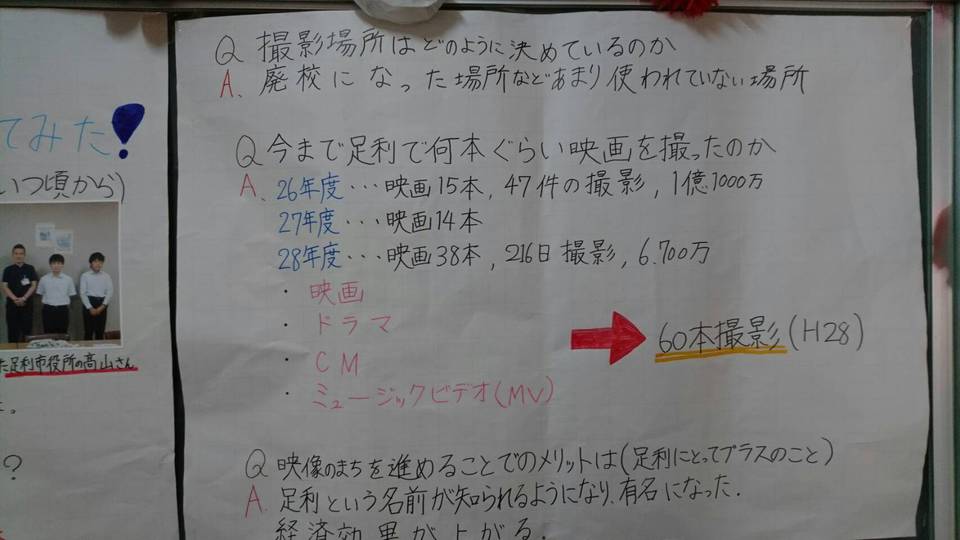 てみた!
いつ頃から)
足利市役所の高山さん
?
Q 撮影場所はどのように決めているのか
A、廃校になった場所などあまり使われていない場所
Q 今まで足利で何本ぐらい映画を撮ったのか
A、26年度・・・映画15本, 47件の撮影, 1億1000万
27年度・・・映画14本
28年度・・・映画38本, 216日 撮影, 6.700万
・映画
・ドラマ
・CM
・ミュージックビデオ(MV)
60本撮影(H28)
Q 映像のまちを進めることでのメリットは(足利にとってプラスのこと)
A、足利という名前が知られるようになり、有名になった.
経済効果が上がる.